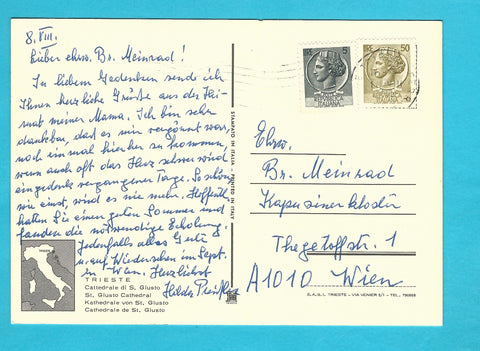 8. VIII.
Lieber ehrw. Br. Meinrad!
In liebem Gedenken sende ich
Ihnen herzliche Grüße aus der Hei-
mat meiner Mama. Ich bin sehr
dankbar, daß es mir vergönnt war
noch einmal hierher zu kommen,
wenn auch oft das Herz schwer wird
eingedenk vergangener Tage. So schön
wie einst, wird es nie mehr. Hoffentl.
hatten Sie einen guten Sommer und
fanden die notwendige Erholung.
Jedenfalls alles Gute
u. auf Wiedersehen im Sept.
in Wien. Herzlichst
Hilde
TRIESTE
Cattedrale di S. Giusto
St. Giusto Cathedral
Kathedrale von St. Giusto
Cathedrale de St. Giusto
TRIESTE
STAMPATO IN ITALIA - PRINTED IN ITALY
5
50
Ehrw.
Br. Meinrad
Kapuzinerkloster
Thegetoffstr. 1
A1010 Wien
TRIESTE - VIA VENIER